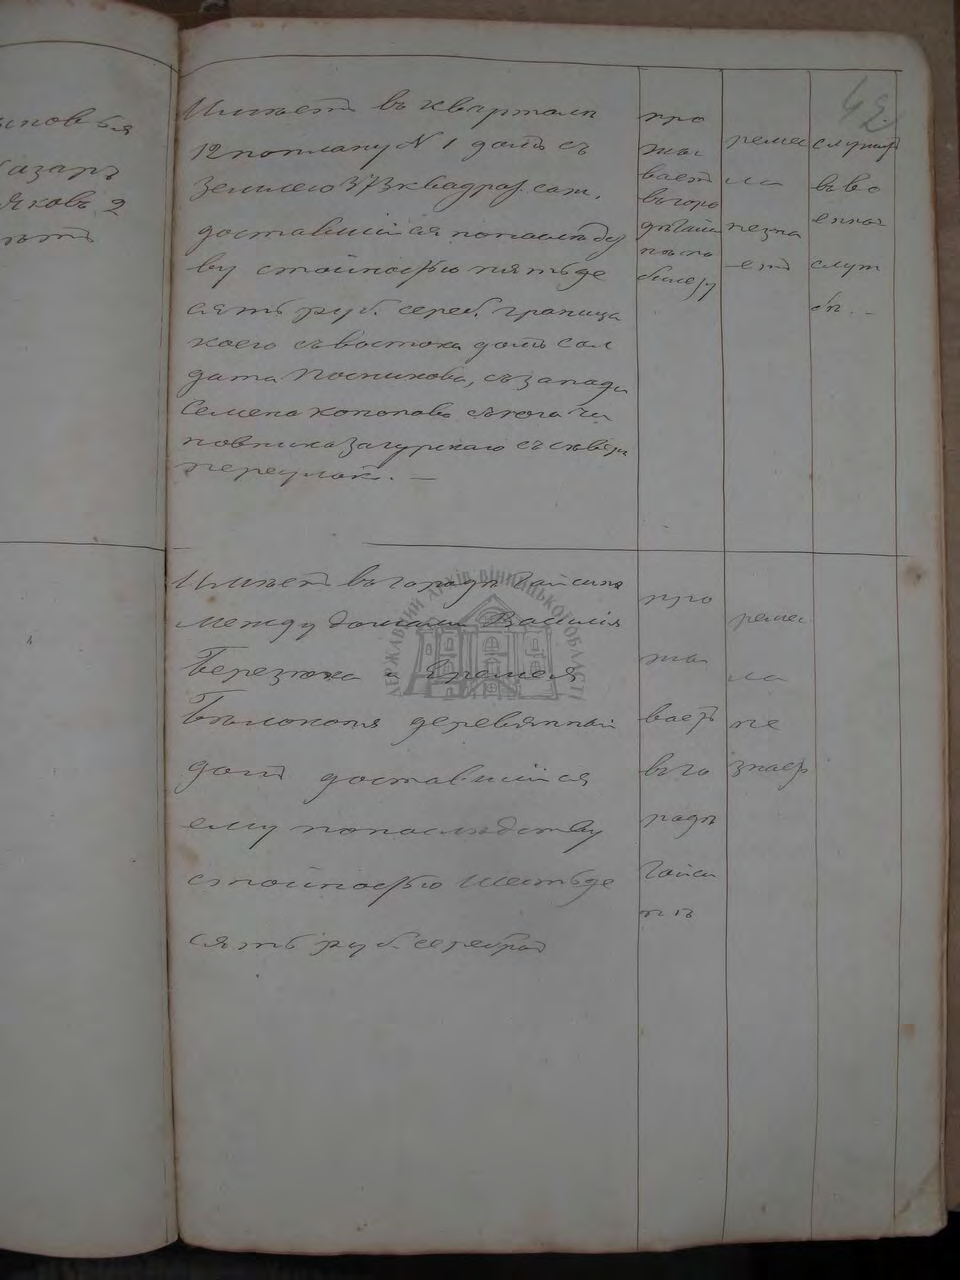 42
ыновья
Лазарь
Яковъ 2
лѣтъ
Имѣетъ въ кварталѣ
12 поплану N 1 домъ съ
землею 373 квадра. саж.
доставшійся понаслѣдс
ву стоимостью пятьде
сятъ руб. сереб. граница
коего съ востока домъ сол
дата Посникова, съ запада
Семена Кононова съ юга чи
новника Загурскаго съ сѣвера
переулокъ. —
про
жи
ваетъ
въ горо
дѣ Гайси
нѣ по
билету
ремес
ла
незна
етъ
служитъ
въ во
енной
служ
бѣ. —
Имѣетъ въ городѣ Гайсинѣ
между домами Василія
Березюка и Еремея
Бѣлоконя деревянный
домъ доставшійся
ему понаслѣдству
стоимостью шестьде
сятъ руб. серебро
про
жи
ваетъ
въ го
родѣ
Гайси
нѣ
ремес
ла
не
знаетъ
ДЕРЖАВНИЙ АРХІВ ВІННИЦЬКОЇ ОБЛАСТІ